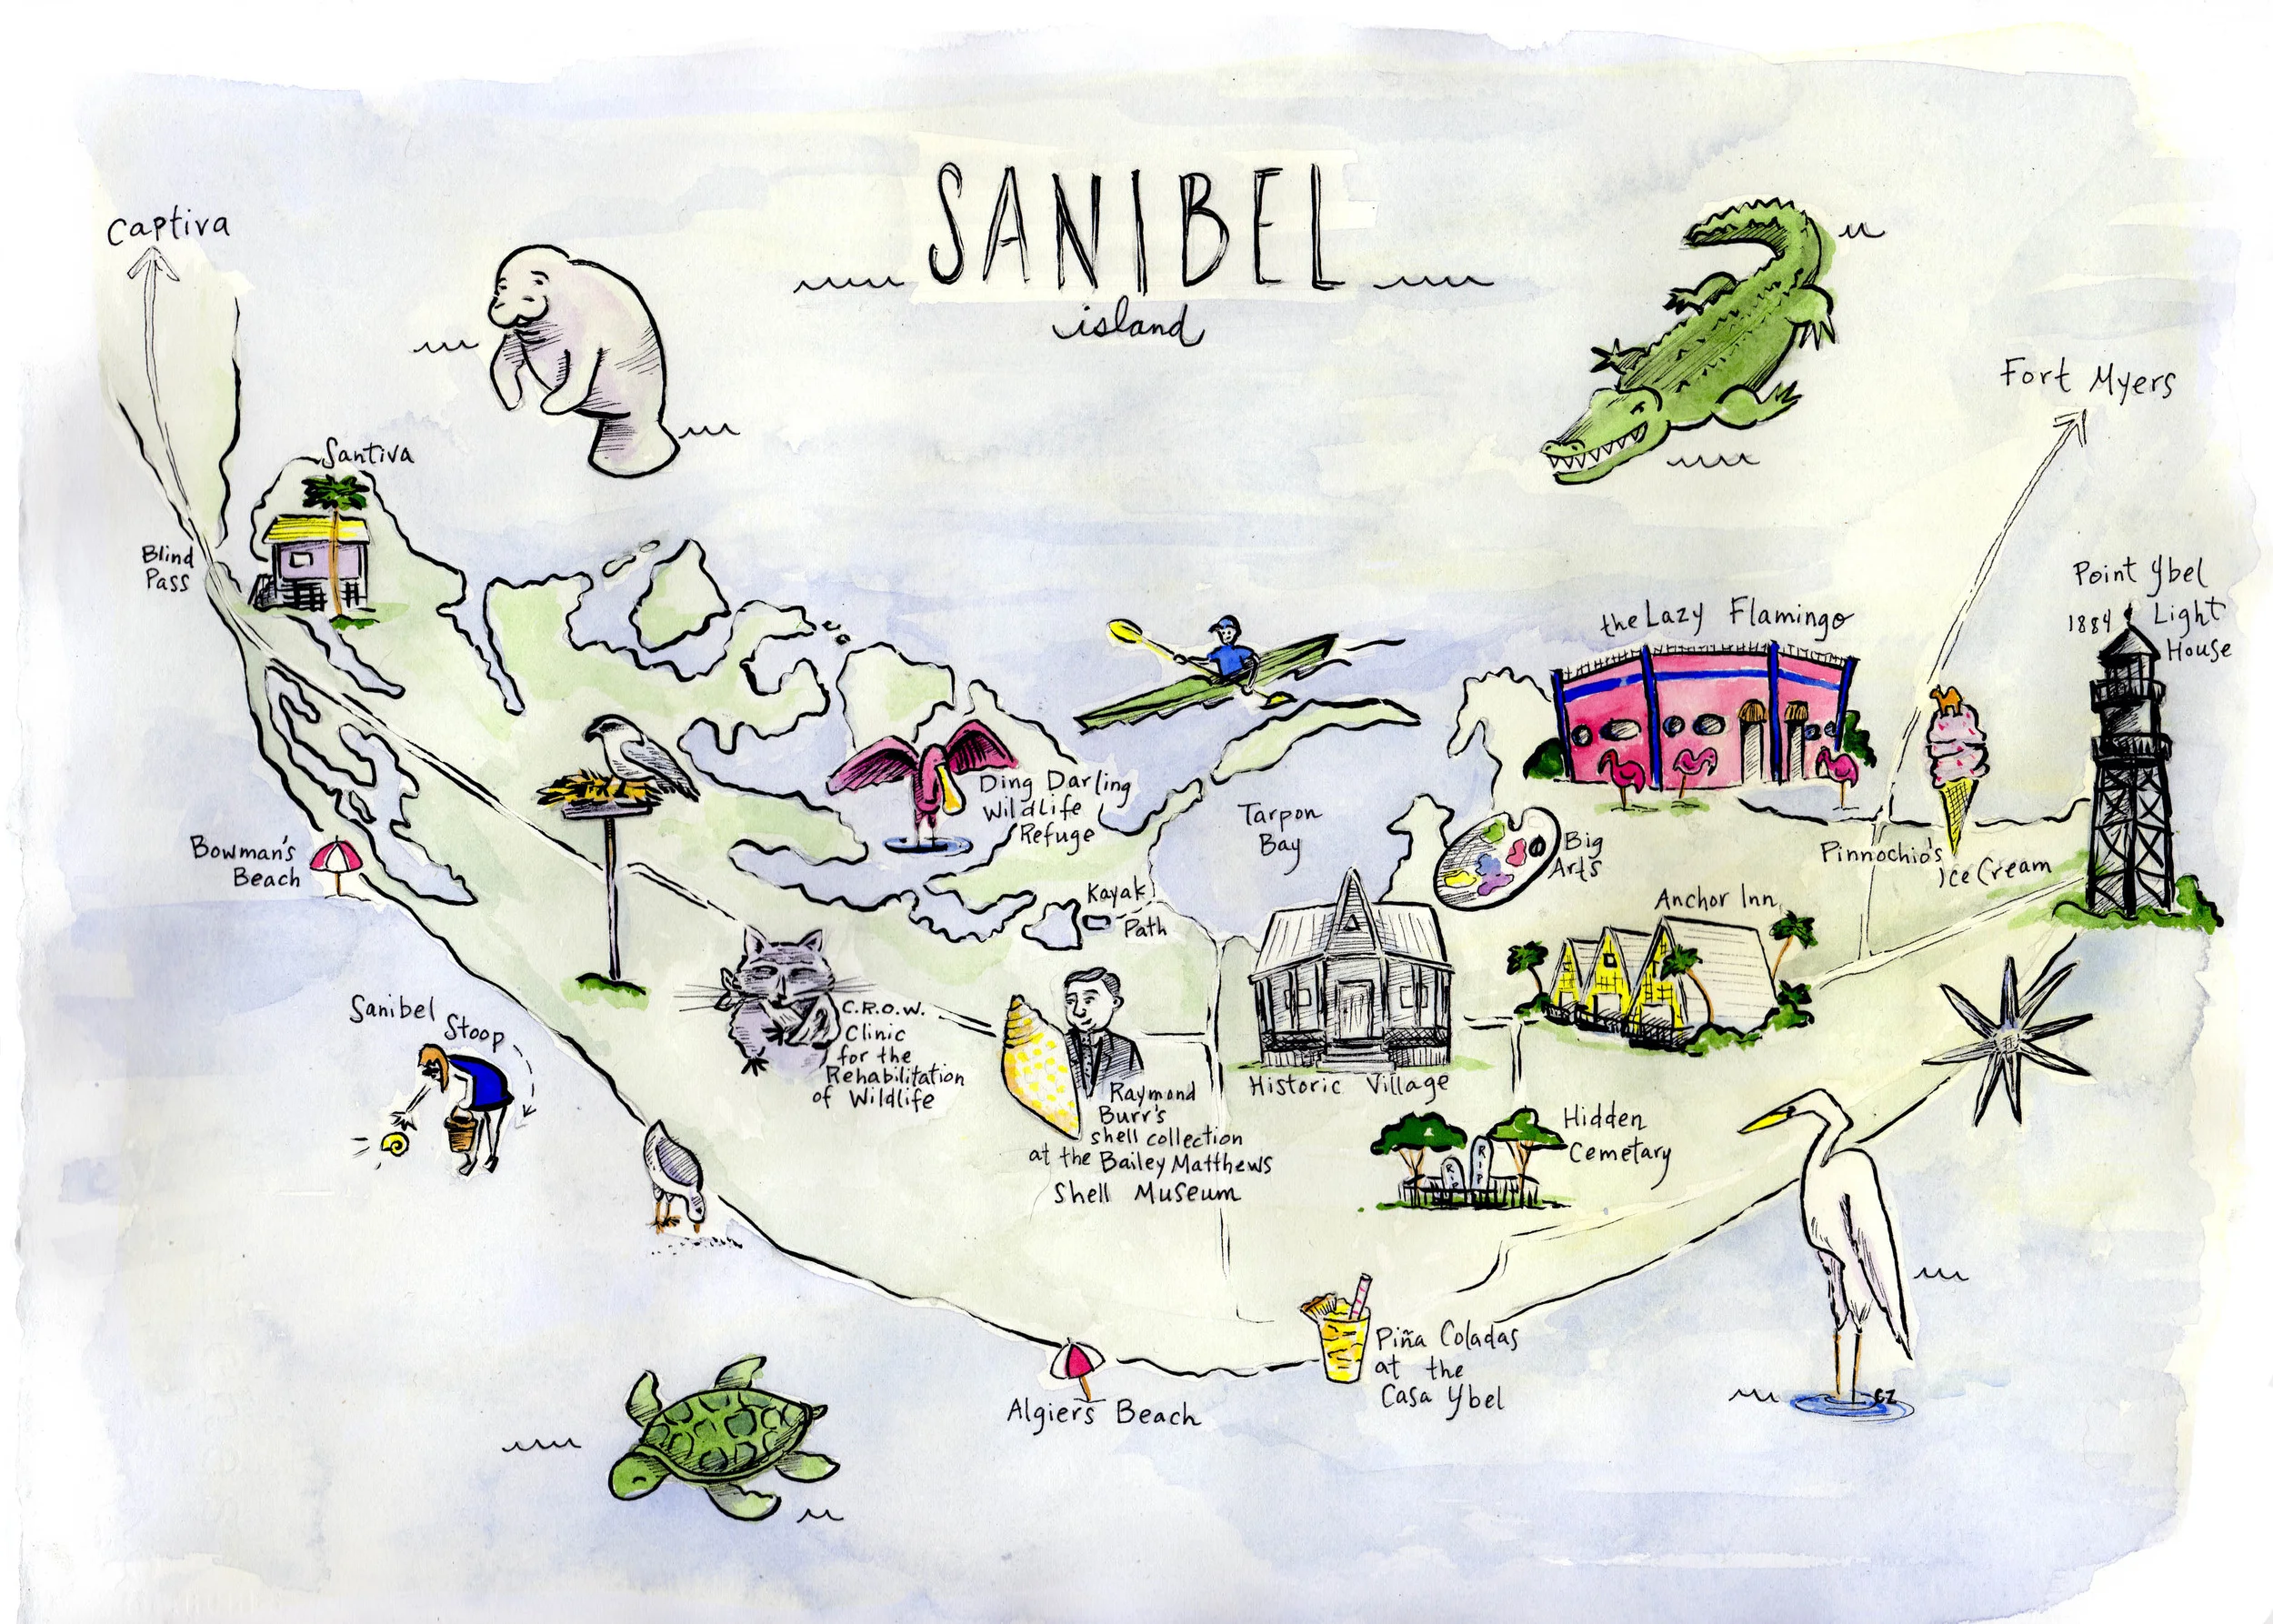 SANIBEL
island
Captiva
Fort Myers
Santiva
Blind
Pass
Point Ybel
1884 Light
House
the Lazy Flamingo
Ding Darling
Wildlife
Refuge
Tarpon
Bay
Big
Arts
Pinnochio's
Ice Cream
Bowman's
Beach
Kayak
Path
Anchor Inn
Sanibel
Stoop
C.R.O.W.
Clinic
for the
Rehabilitation
of Wildlife
Raymond
Burr's
shell collection
at the Bailey Matthews
Shell Museum
Historic Village
Hidden
Cemetary
RIP
RIP
Piña Coladas
at the
Casa Ybel
Algiers Beach